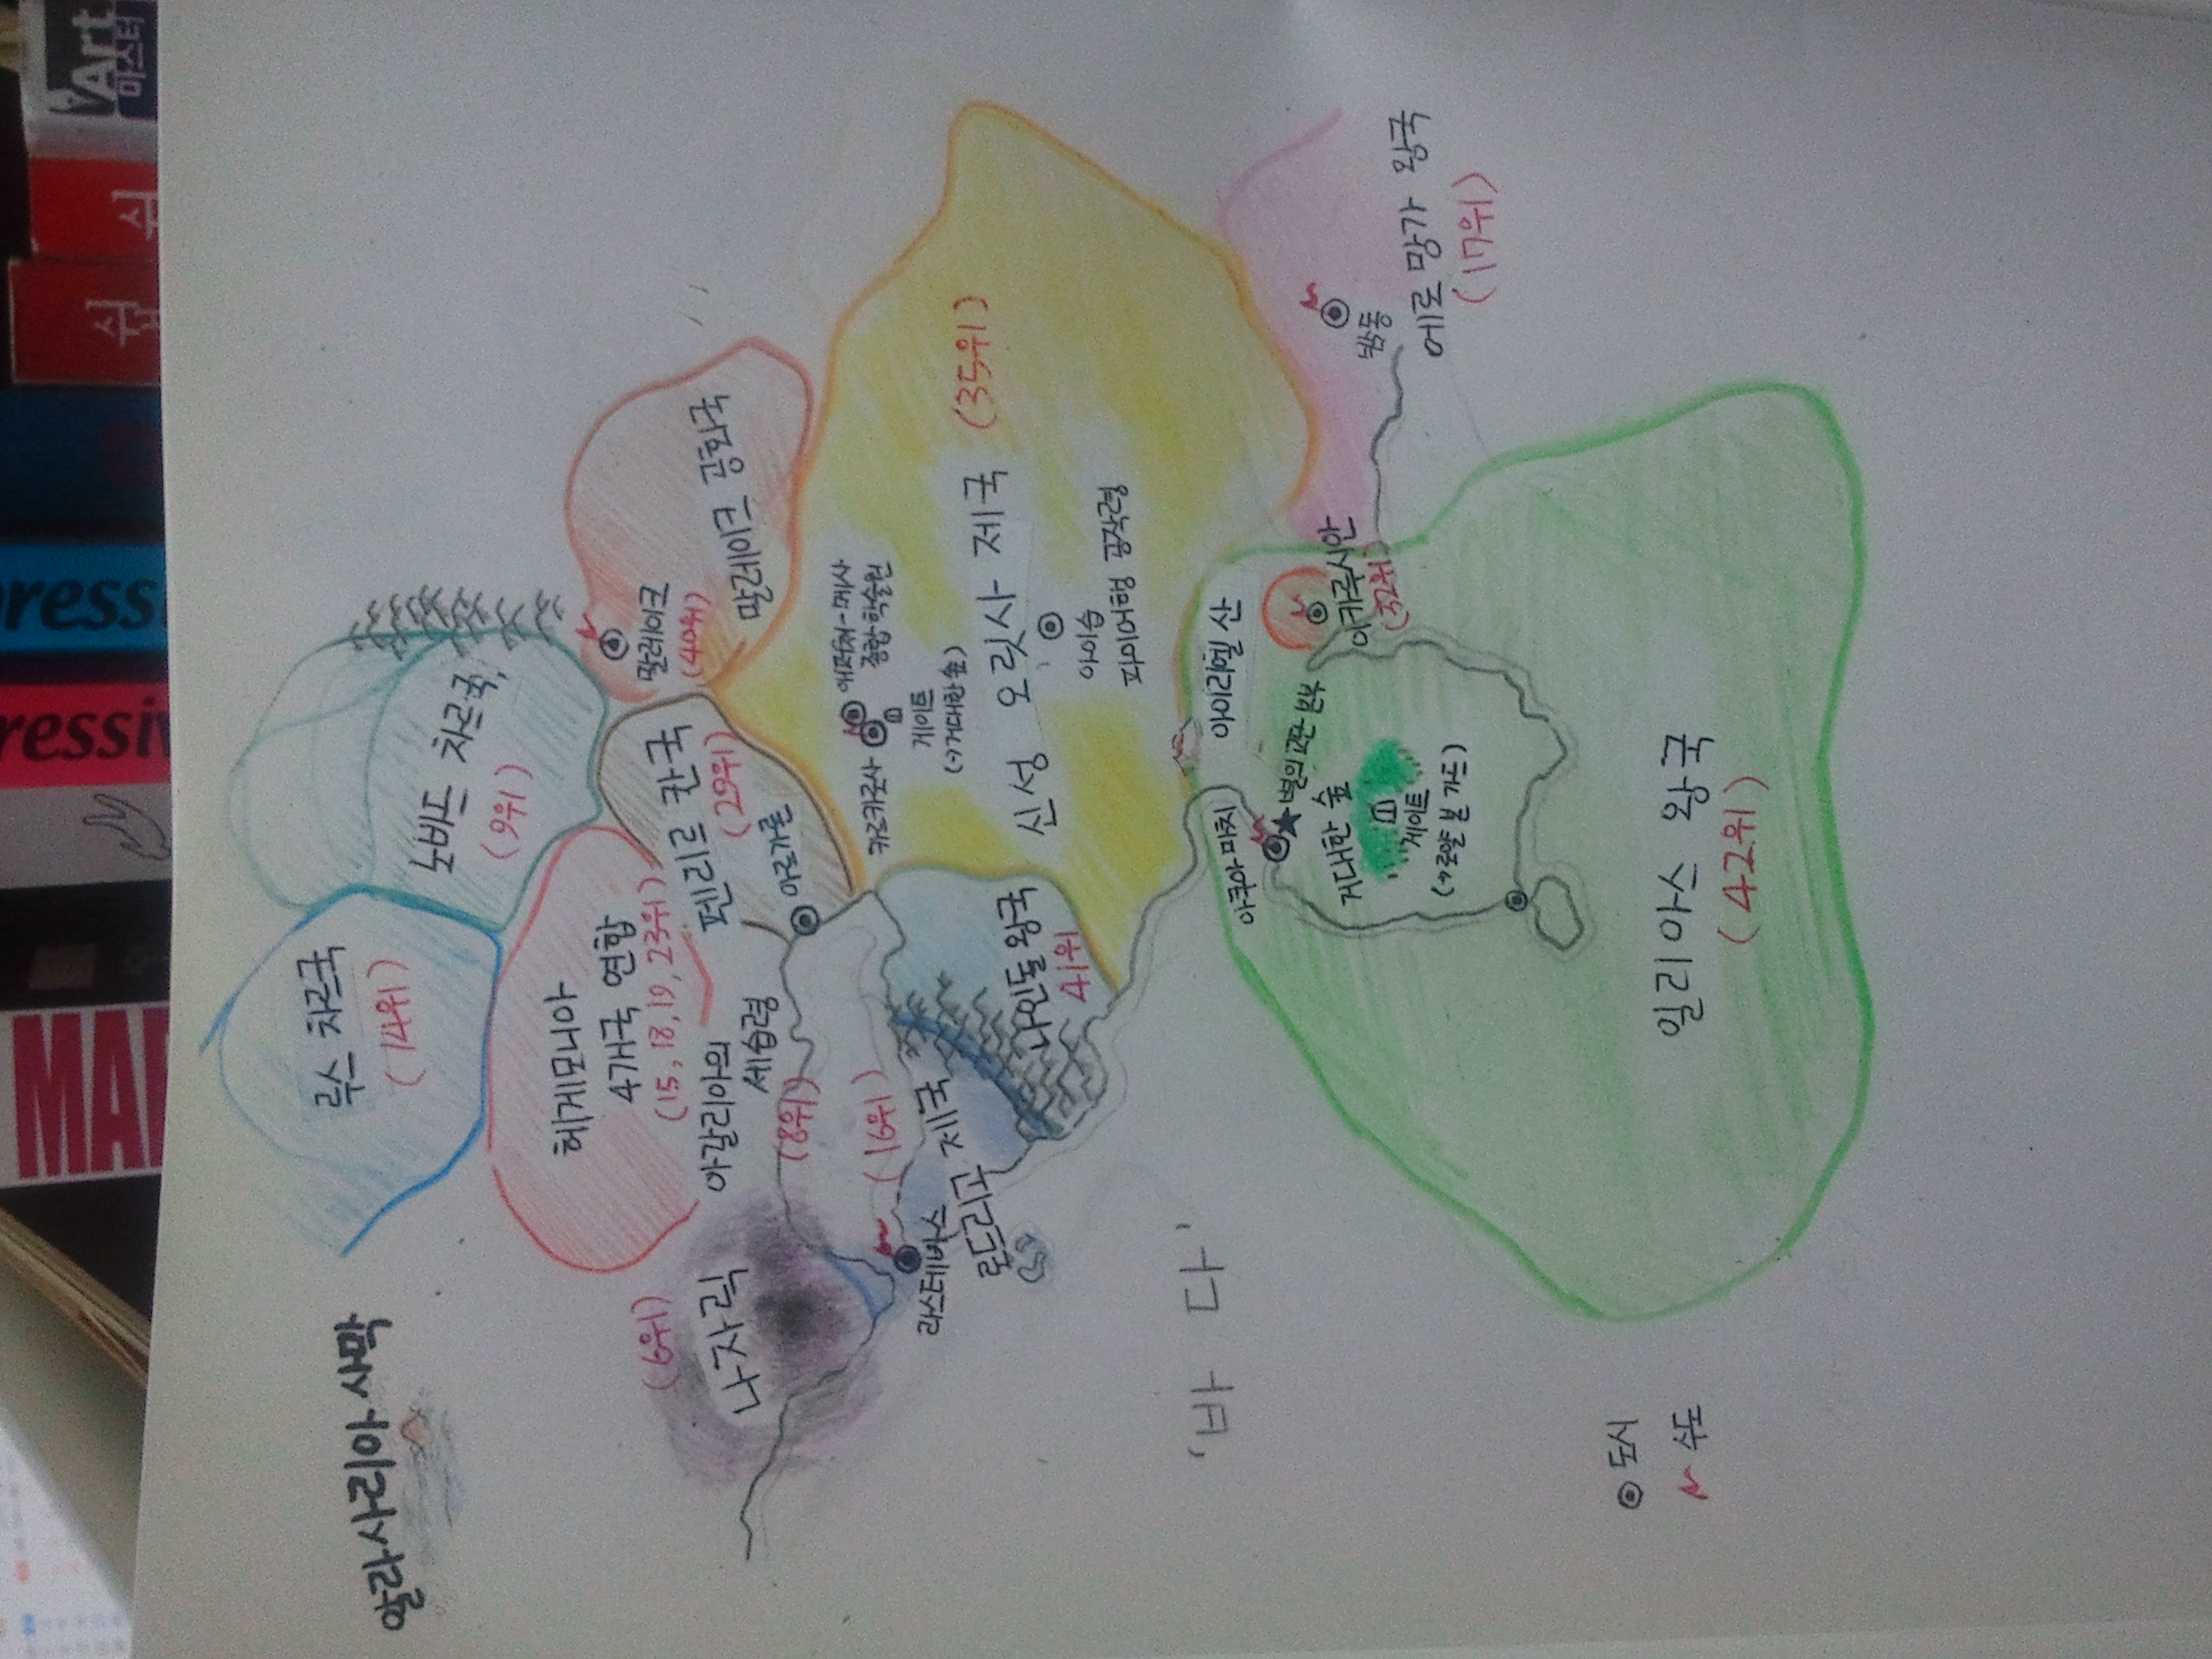 알라사리아 사막
루스 차르국
(14위)
노비드 차르국
(9위)
헤게모니아
4개국 연합
(15, 18, 19, 23위)
펜리르 칸국
(29위)
아르가론
말레이크
(40위)
말레이크 공화국
아갈리아의
세습령
(8위)
나자릭
(6위)
(16위)
로드리고 제국
라스테바스
나인돌 왕국
41위
카르카로사
에퍼처-메사
종합 학술원
게이트
(→거대한 숲)
신성 오릿사 제국
(35위)
아이솜
파이어햄 공작령
에로망가 왕국
(17위)
아이리엘 산
이카루시안
(32위)
아쿠아 피치
별의 교단 본부
거대한 숲
게이트
(→로얄 본 가드)
일리아스 왕국
(42위)
'바 다'
도시
수도
Art
마스터
pressi
ressiv
MA